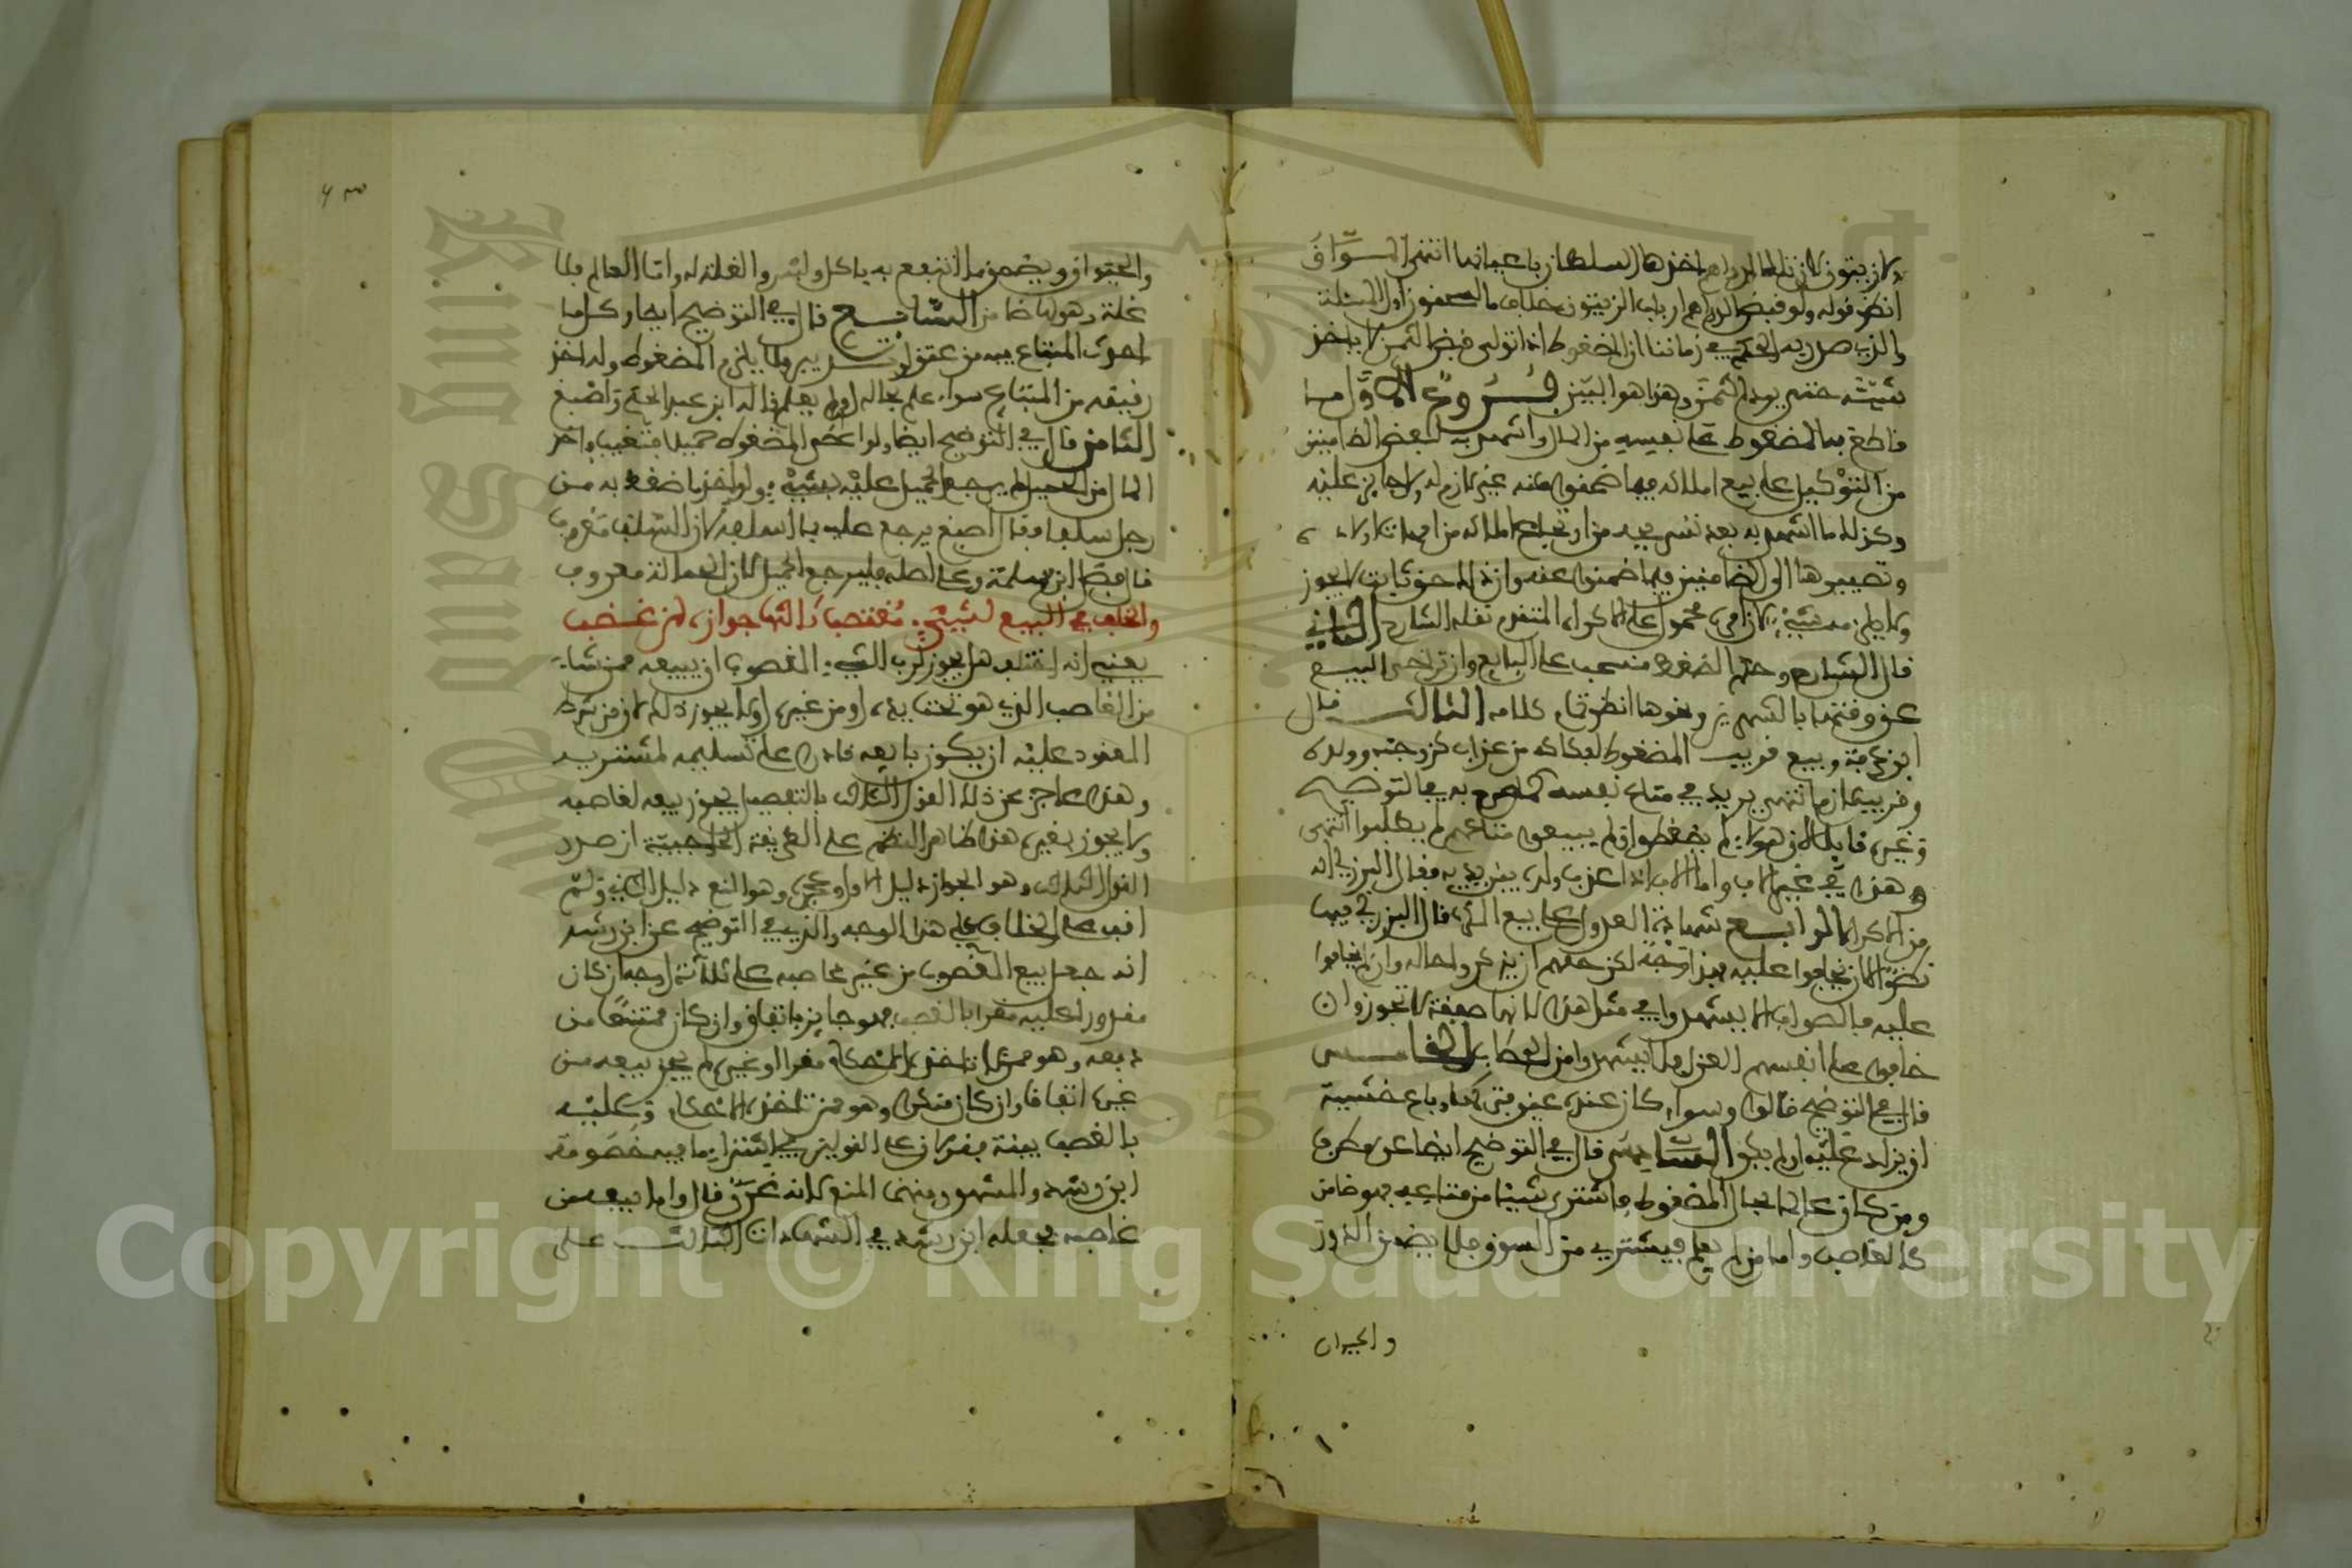 انظر قوله ولو قبض الدراهم ارباب الزيتون خلاف
والذي صدر به الحكم في زماننا ان المضغوط اذا تولى قبض الثمن لا ياخذ
شيئه حتى يرد الثمن وهذا هو البين فروع الاول ما
قاطع به المضغوط على نفسه من المال واشهد به لبعض الضامنين
من التوكيل على بيع املاكه فيما ضمنوه عنه غير لازم له ولا جايز عليه
وكذلك ما اشهد به بعد تسريحه من
وتصييرها الى الضامنين فيما ضمنوه عنه وان ذلك حق ثابت لا يجوز
ولا يلزمه شيء لان امره محمول على الاكراه المتقدم نقله الشارح الثاني
قال الشارح وحكم الضغط منسحب على البايع وان تراخى البيع
عن وقته بالشهرين ونحوها انظر تمام كلامه الثالث قال
ابن عرفة وبيع قريب المضغوط لفكاكه من عذاب كزوجته وولده
وقريبه لازم انتهى يريد في متاع نفسه كما صرح به في التوضيح
وغيره قايلا لان هؤلاء لم يضغطوا ولو لم يبيعوا متاعهم لم يطلبوا انتهى
وهذا في غير الاب واما الاب اذا عذب ولده بين يديه فقال البرزلي انه
من الاكراه الرابع شهادة العدول على بيع المكره قال البرزلي فيها
نظر الا ان يخافوا عليه لكن حقهم ان يذكروا حاله وان لم يخافوا
عليه فالصواب الا يشهدوا في مثل هذا لانها صفقة لا تجوز وان
خافوا على انفسهم العزل فلا يشهدوا من الخامس
قال في التوضيح قالوا وسواء كان عنده عين فتركها وباع خشية
ان يزاد عليه او لم يكن السادس قال في التوضيح ايضا عن مطرف
ومن كان عالما بحال المضغوط فاشترى شيئا من متاعه فهو ضامن
كالغاصب واما من لم يعلم فيشتري من السوق فلا يضمن الدور
والحيوان
والحيوان ويضمن ما انتفع به ياكل وليس والغلة له واما العالم فلا
غلة وهو لها ضامن السابع قال في التوضيح ايضا وكل ما
احدث المبتاع فيه من عتق او تدبير فلا يلزم المضغوط وله اخذ
رقيقه من المبتاع سواء علم بحاله او لم يعلم قاله ابن عبد الحكم واصبغ
الثامن قال في التوضيح ايضا ولو اعطى المضغوط حميلا فتغيب واخذ
المال من الحميل لم يرجع الحميل عليه بشيء ولو اخذ ما ضغط به من
رجل سلفا وقال اصبغ يرجع عليه بالسلف لان السلف معروف
قال فضل ابن سلمة وعلى اصله فليرجع الحميل لان الحمالة معروف
والخلف في البيع لشيء مغتصب ثالثها جوازه لمن غصب
يعني انه اختلف هل يجوز لرب الشيء المغصوب ان يبيعه ممن شاء
من الغاصب الذي هو تحت يده او من غيره او لا يجوز ذلك لان من شرط
المعقود عليه ان يكون بايعه قادرا على تسليمه لمشتريه
وهذا عاجز عن ذلك القول الثالث بالتفصيل يجوز بيعه لغاصبه
ولا يجوز لغيره هذا ظاهر النظم على الطريقة الحاجبية ان صدر
القول الثالث وهو الجواز دليل الاول وعجزه وهو المنع دليل الثاني ولم
اقف على الخلاف على هذا الوجه والذي في التوضيح عن ابن رشد
انه جعل بيع المغصوب من غير غاصبه على ثلاثة اوجه ان كان
مقدورا عليه مقرا بالغصب فهو جايز باتفاق وان كان ممتنعا من
دفعه وهو ممن لا تاخذه الاحكام مقرا او غيره لم يجز بيعه من
غيره اتفاقا وان كان منكرا وهو ممن تاخذه الاحكام وعليه
بالغصب بينة فقولان على القولين في اشتراء ما فيه خصومة
ابن رشد والمشهور منهما المنع لانه غرر قال واما بيعه من
غاصبه فجعله ابن رشد في الشهادات الثالث على